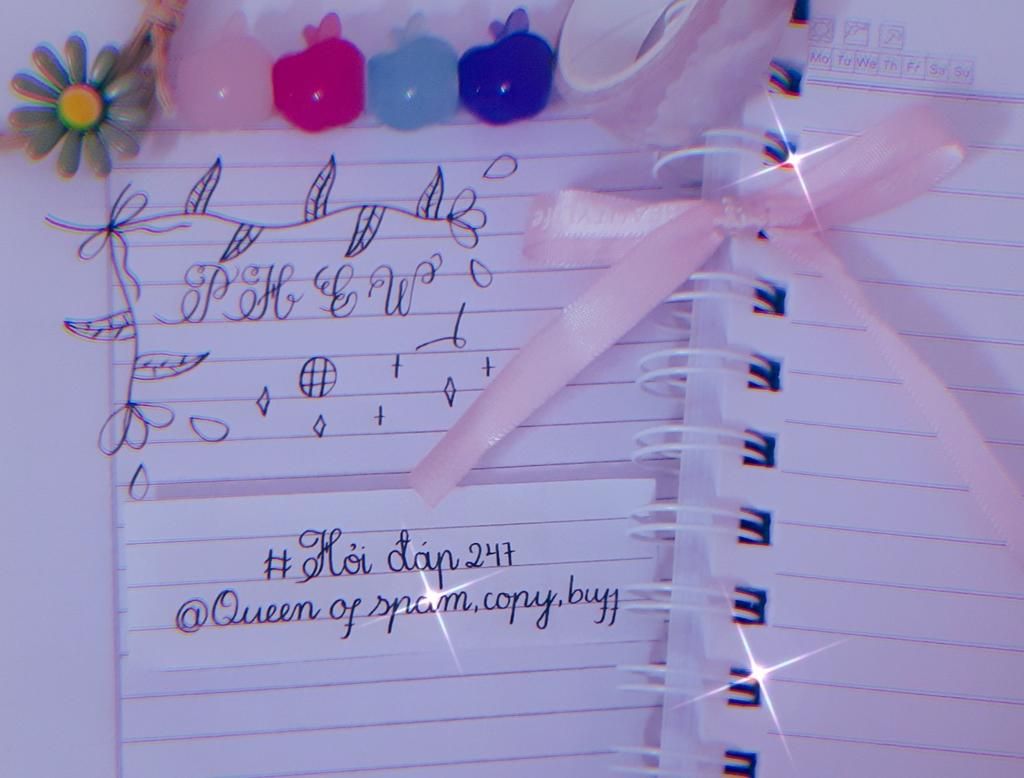 Mo Tu We Th Fr Sa Su
P H E W
#Hỏi đáp 247
@Queen of spam, copy, buff